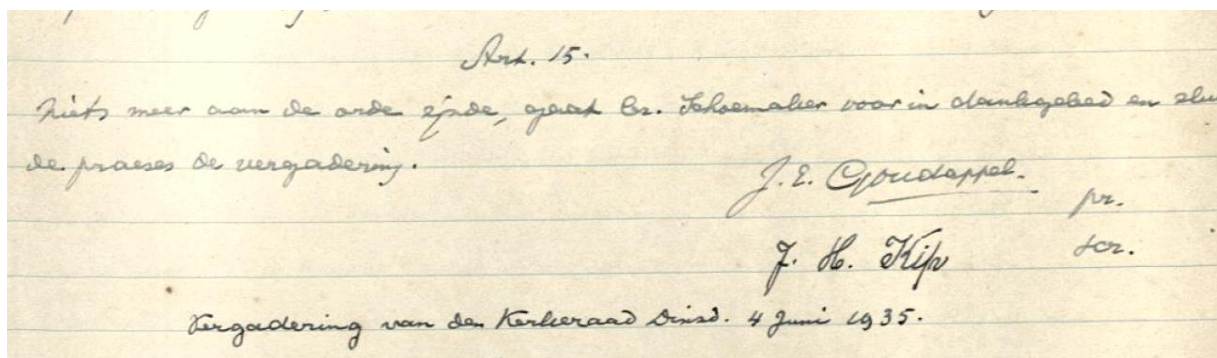 Art. 15.
Niets meer aan de orde zijnde, gaat br. Schoemaker voor in dankgebed en slu
de praeses de vergadering.
J. E. Goudappel. pr.
J. H. Kip scr.
Vergadering van den Kerkeraad Dinsd. 4 Juni 1935.